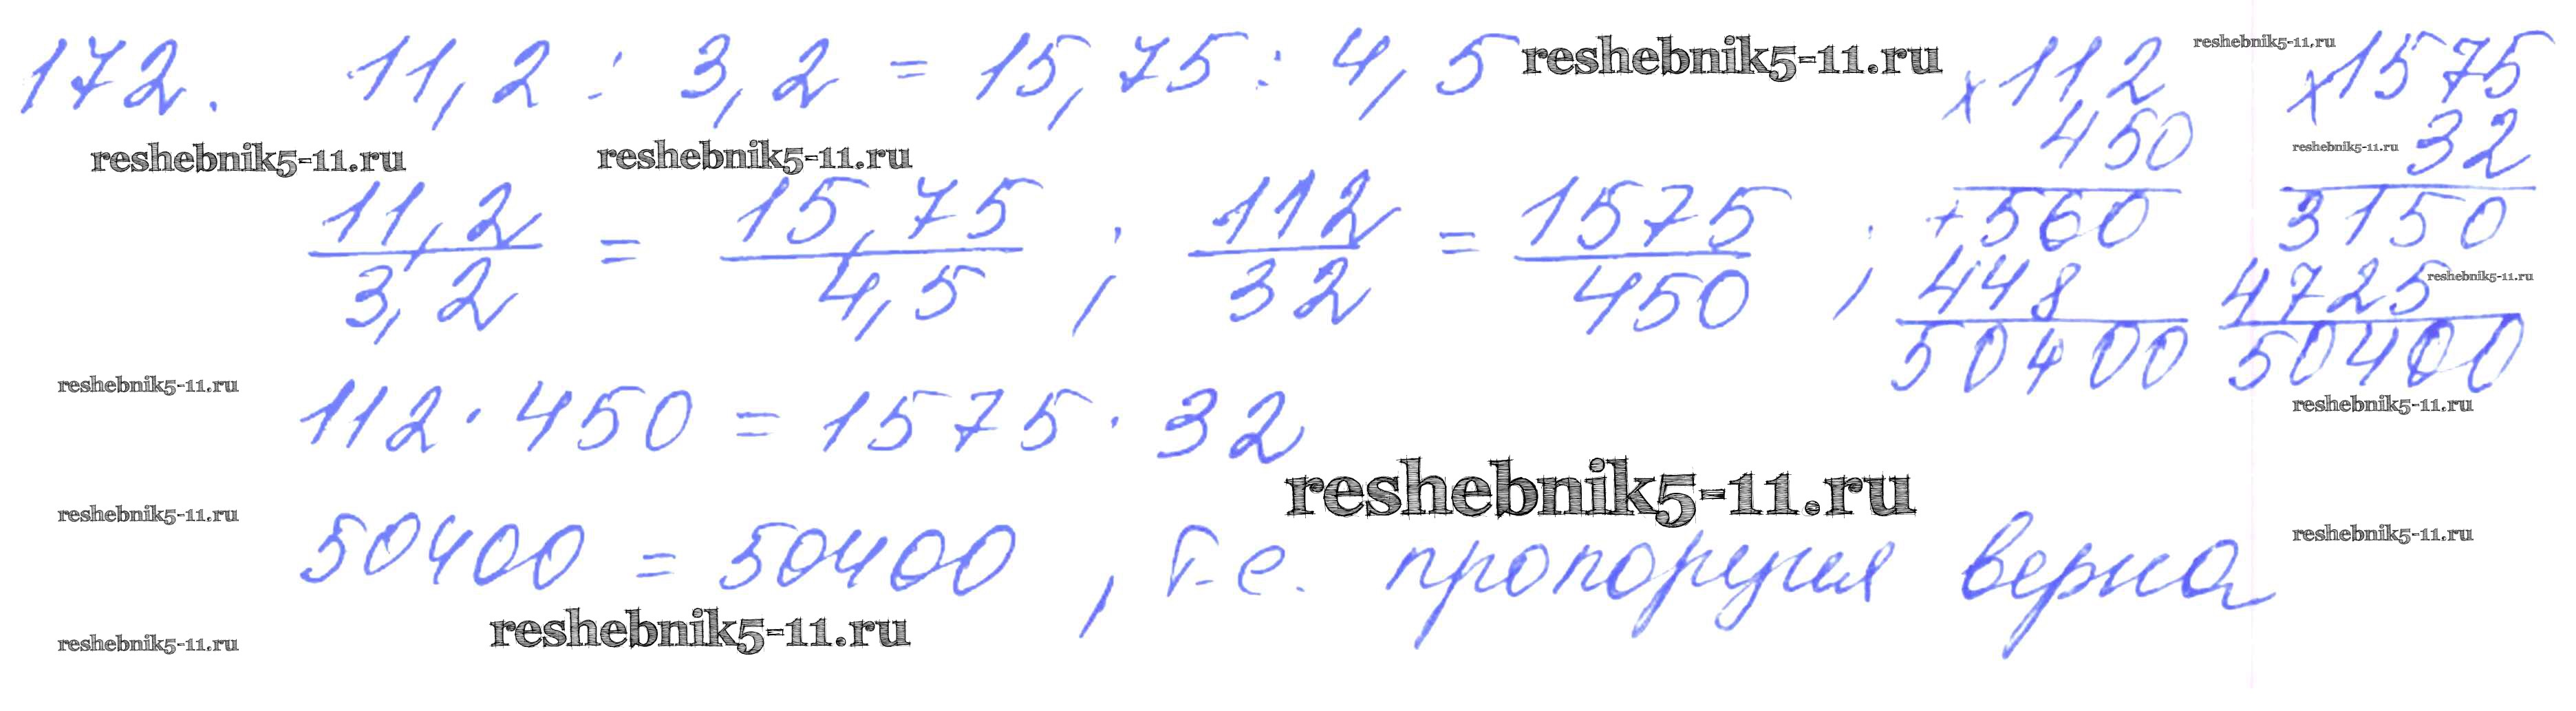 172. 11,2 : 3,2 = 15,75 : 4,5
reshebnik5-11.ru
reshebnik5-11.ru
reshebnik5-11.ru
reshebnik5-11.ru
11,2 / 3,2 = 15,75 / 4,5 ; 112 / 32 = 1575 / 450 ;
x 112
450
+ 560
448
50400
x 1575
32
reshebnik5-11.ru
3150
4725
reshebnik5-11.ru
50400
reshebnik5-11.ru
reshebnik5-11.ru
112 · 450 = 1575 · 32
reshebnik5-11.ru
reshebnik5-11.ru
reshebnik5-11.ru
50400 = 50400 , т.е. пропорция верна
reshebnik5-11.ru
reshebnik5-11.ru